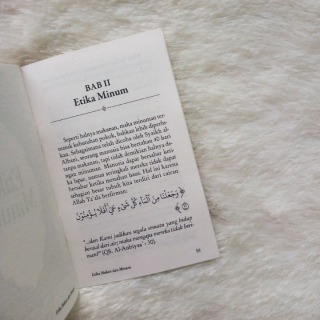 BAB II
Etika Minum
Seperti halnya makanan, maka minuman ter-
masuk kebutuhan pokok, bahkan lebih diperlu-
kan. Sebagaimana telah dicoba oleh Syaikh al-
Albani, seorang manusia bisa bertahan 40 hari
tanpa makanan, tapi tidak demikian halnya de-
ngan minuman. Manusia dapat bersabar keti-
ka lapar, namun seringkali mereka tidak dapat
bersabar ketika menahan haus. Hal ini karena
sebagian besar tubuh kita terdiri dari cairan.
Allah Ta'ala berfirman:
﴿ وَجَعَلْنَا مِنَ الْمَاءِ كُلَّ شَيْءٍ حَيٍّ أَفَلَا يُؤْمِنُونَ
"...dan Kami jadikan segala sesuatu yang hidup
berasal dari air; maka mengapa mereka tidak beri-
man?" (QS. Al-Anbiyaa' : 30).
Etika Makan dan Minum